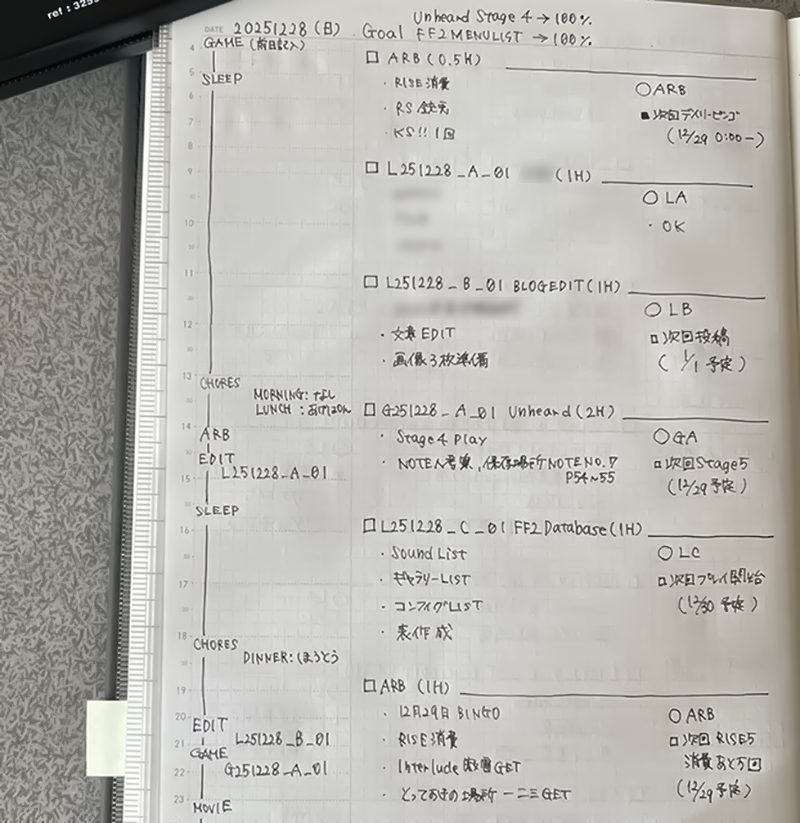 ref : 329
Unheard Stage 4 → 100%
DATE 20251228 (日) . Goal FF2 MENULIST → 100%
4 GAME (前日記入)
5 SLEEP
6
7
8
9
10
11
12
13 CHORES
MORNING: なし
LUNCH : あげ
14 ARB
EDIT
L251228_A_01
15
SLEEP
16
17
18 CHORES
DINNER: ほうとう
19
20 EDIT
L251228_B_01
21 GAME
G251228_A_01
22
23 MOVIE
□ ARB (0.5H)
・RISE 消費
・RS
・KS!! 1回
○ARB
■次回デイリービンゴ
(12/29 0:00ー)
□ L251228_A_01 (1H)
○ LA
・OK
□ L251228_B_01 BLOGEDIT (1H)
・文章 EDIT
・画像3枚準備
○ LB
□次回投稿
(1/1 予定)
□ G251228_A_01 Unheard (2H)
・Stage 4 Play
・NOTE 保存場所 NOTE NO.7
P54~55
○GA
□次回 Stage5
(12/29予定)
□ L251228_C_01 FF2 Database (1H)
・Sound List
・ギャラリーLIST
・コンフィグLIST
・表作成
○LC
□次回プレイ開始
(12/30 予定)
□ ARB (1H)
・12月29日 BINGO
・RISE 消費
・Interlude GET
・とっておきの場所 一二三 GET
○ ARB
□次回 RISE5
消費あと5回
(12/29予定)